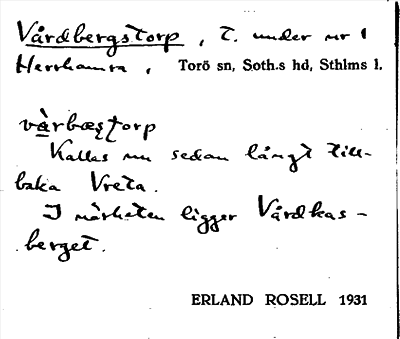 Vårdbergstorp, t. under nr 1
Herrhamra, Torö sn, Soth.s hd, Sthlms l.
Kallas nu sedan långt till-
baka Vreta.
I närheten ligger Vårdkas-
berget.
ERLAND ROSELL 1931